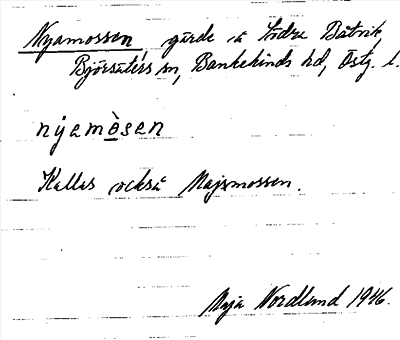 Nyamossen, gärde å Södra Båtvik,
Björsäters sn, Bankekinds hd, Östg. l.
nyemòsen
Kallas också Majsmossen.
Maja Nordlund 1946.